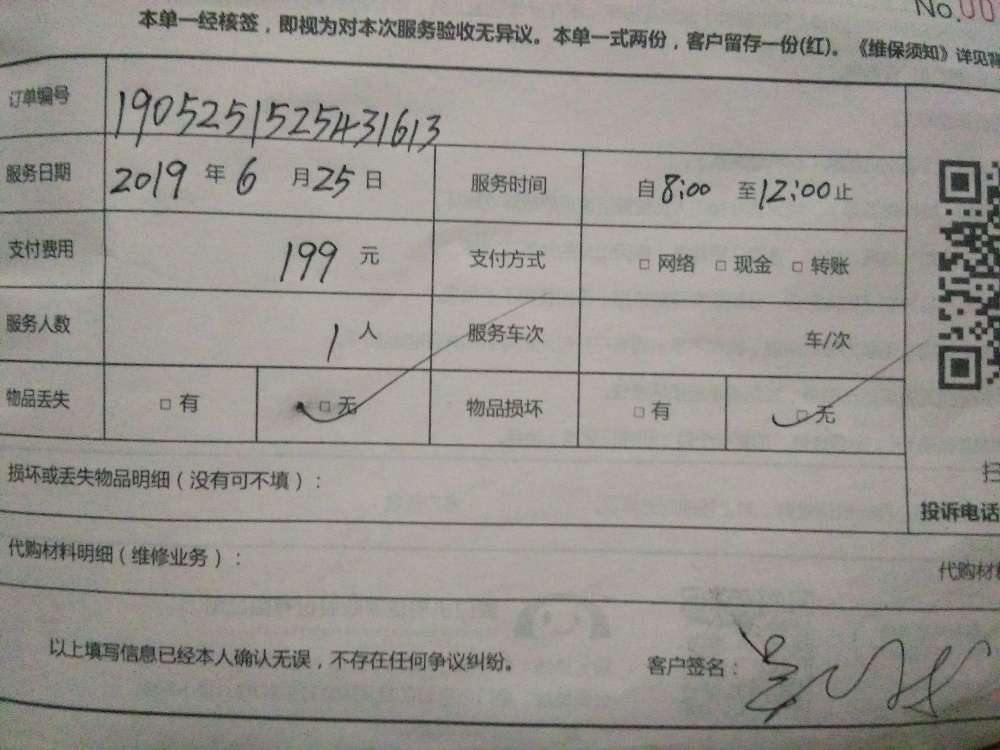 No.00
本单一经核签，即视为对本次服务验收无异议。本单一式两份，客户留存一份(红)。《维保须知》详见背
订单编号 1905251525431613
服务日期 2019 年 6 月 25 日 服务时间 自 8:00 至 12:00 止
支付费用 199 元 支付方式 □ 网络 □ 现金 □ 转账
服务人数 1 人 服务车次 车/次
物品丢失 □ 有 □ 无 物品损坏 □ 有 □ 无
损坏或丢失物品明细（没有可不填）：
扫
投诉电话
代购材料明细（维修业务）：
代购材
以上填写信息已经本人确认无误，不存在任何争议纠纷。 客户签名：